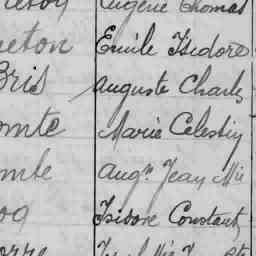 Eugène Thomas
eton Emile Isidore
Bris Auguste Charles
omte Marie Celestin
omte Aug.te Jean M.ie
og Isidore Constant